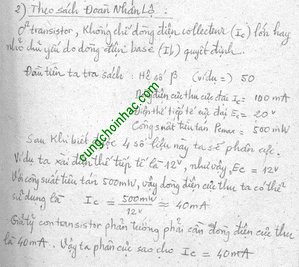 2) Theo sách Đoàn Nhân Lộ :
Ở transistor, khống chế dòng điện collector (Ic) lớn hay
nhỏ chủ yếu do dòng điện base (Ib) quyết định.
Đầu tiên ta tra sách : Hệ số β (ví dụ =) 50
điện cực thu cực đại Ic = 100 mA
thế tiếp tế cực đại Ec = 20 V
Công suất tiêu tán Pcmax = 500 mW
Sau khi biết được 4 số liệu này ta sẽ phân cực.
Ví dụ ta xài điện thế tiếp tế là 12V, như vậy, Ec = 12V
Với công suất tiêu tán 500mW, vậy dòng điện cực thu ta có thể
sử dụng là Ic = 500mW / 12V ≈ 40mA
Giả tỷ con transistor phân tướng phải cần dòng điện cực thu
là 40mA. Vậy ta phân cực sao cho Ic = 40mA
cungchoinhac.com